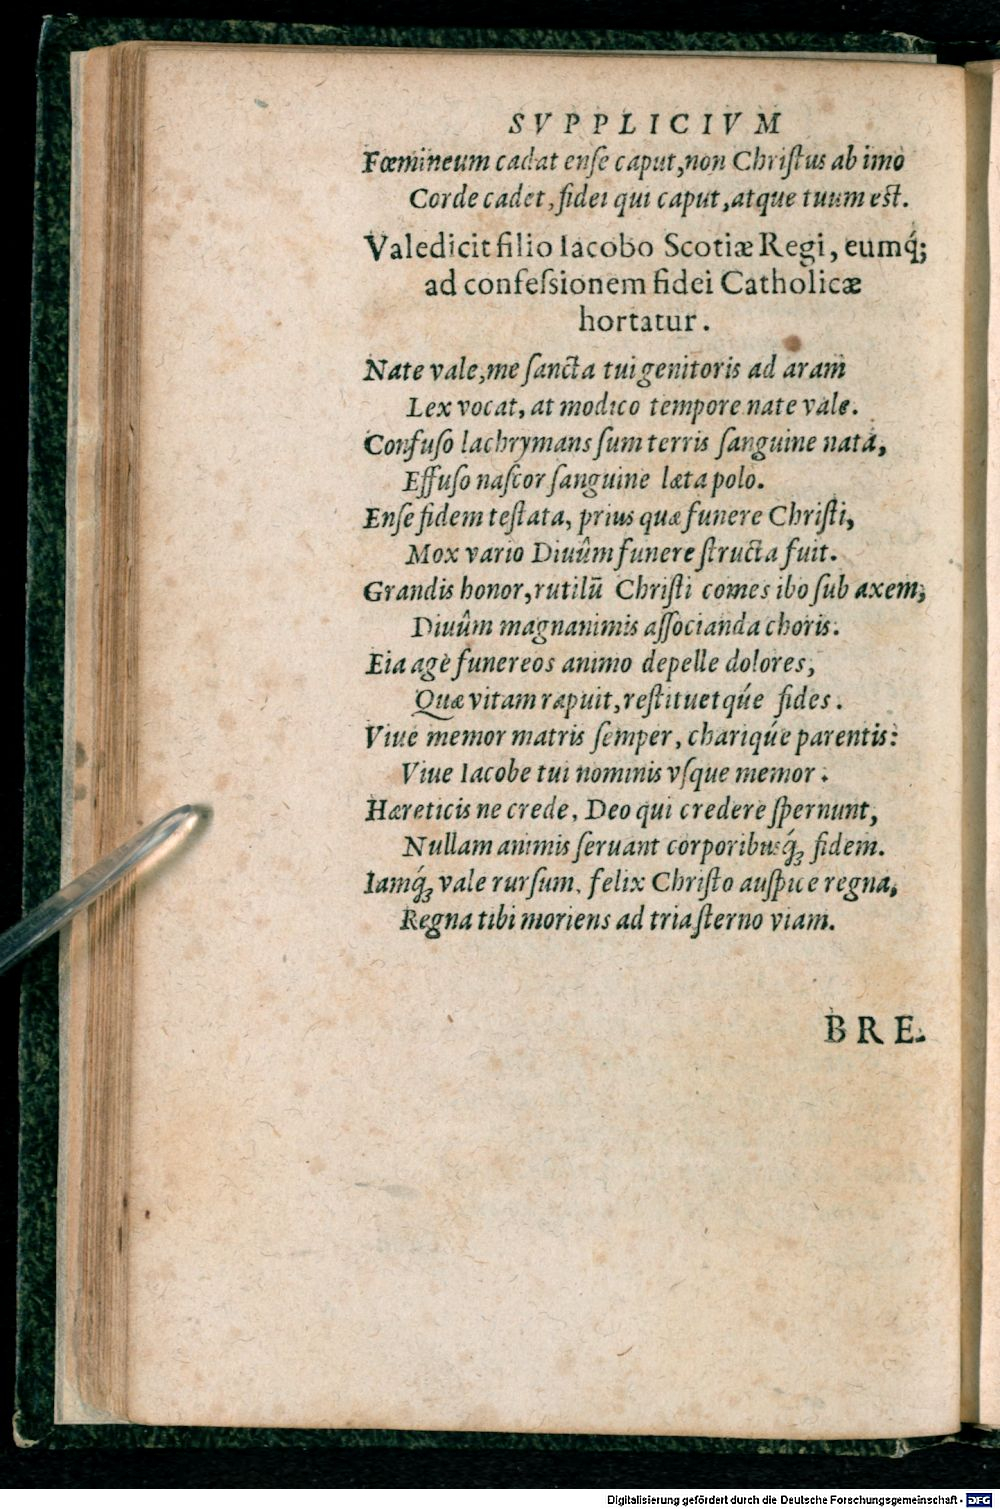 SVPPLICIVM
Fœmineum cadat enſe caput, non Chriſtus ab imo
Corde cadet, fidei qui caput, atque tuum eſt.
Valedicit filio Iacobo Scotiæ Regi, eumq́;
ad confeſsionem fidei Catholicæ
hortatur.
Nate vale, me ſancta tui genitoris ad aram
Lex vocat, at modico tempore nate vale.
Confuſo lachrymans ſum terris ſanguine nata,
Effuſo naſcor ſanguine læta polo.
Enſe fidem teſtata, prius quæ funere Chriſti,
Mox vario Diuûm funere ſtructa fuit.
Grandis honor, rutilũ Chriſti comes ibo ſub axem,
Diuûm magnanimis aſſocianda choris.
Eia agè funereos animo depelle dolores,
Quæ vitam rapuit, reſtituetqúe fides.
Viue memor matris ſemper, chariqúe parentis:
Viue Iacobe tui nominis vſque memor.
Hæreticis ne crede, Deo qui credere ſpernunt,
Nullam animis ſeruant corporibusq́ꝫ fidem.
Iamq́ꝫ vale rurſum, felix Chriſto auſpice regna,
Regna tibi moriens ad tria ſterno viam.
BRE.
Digitalisierung gefördert durch die Deutsche Forschungsgemeinschaft - DFG